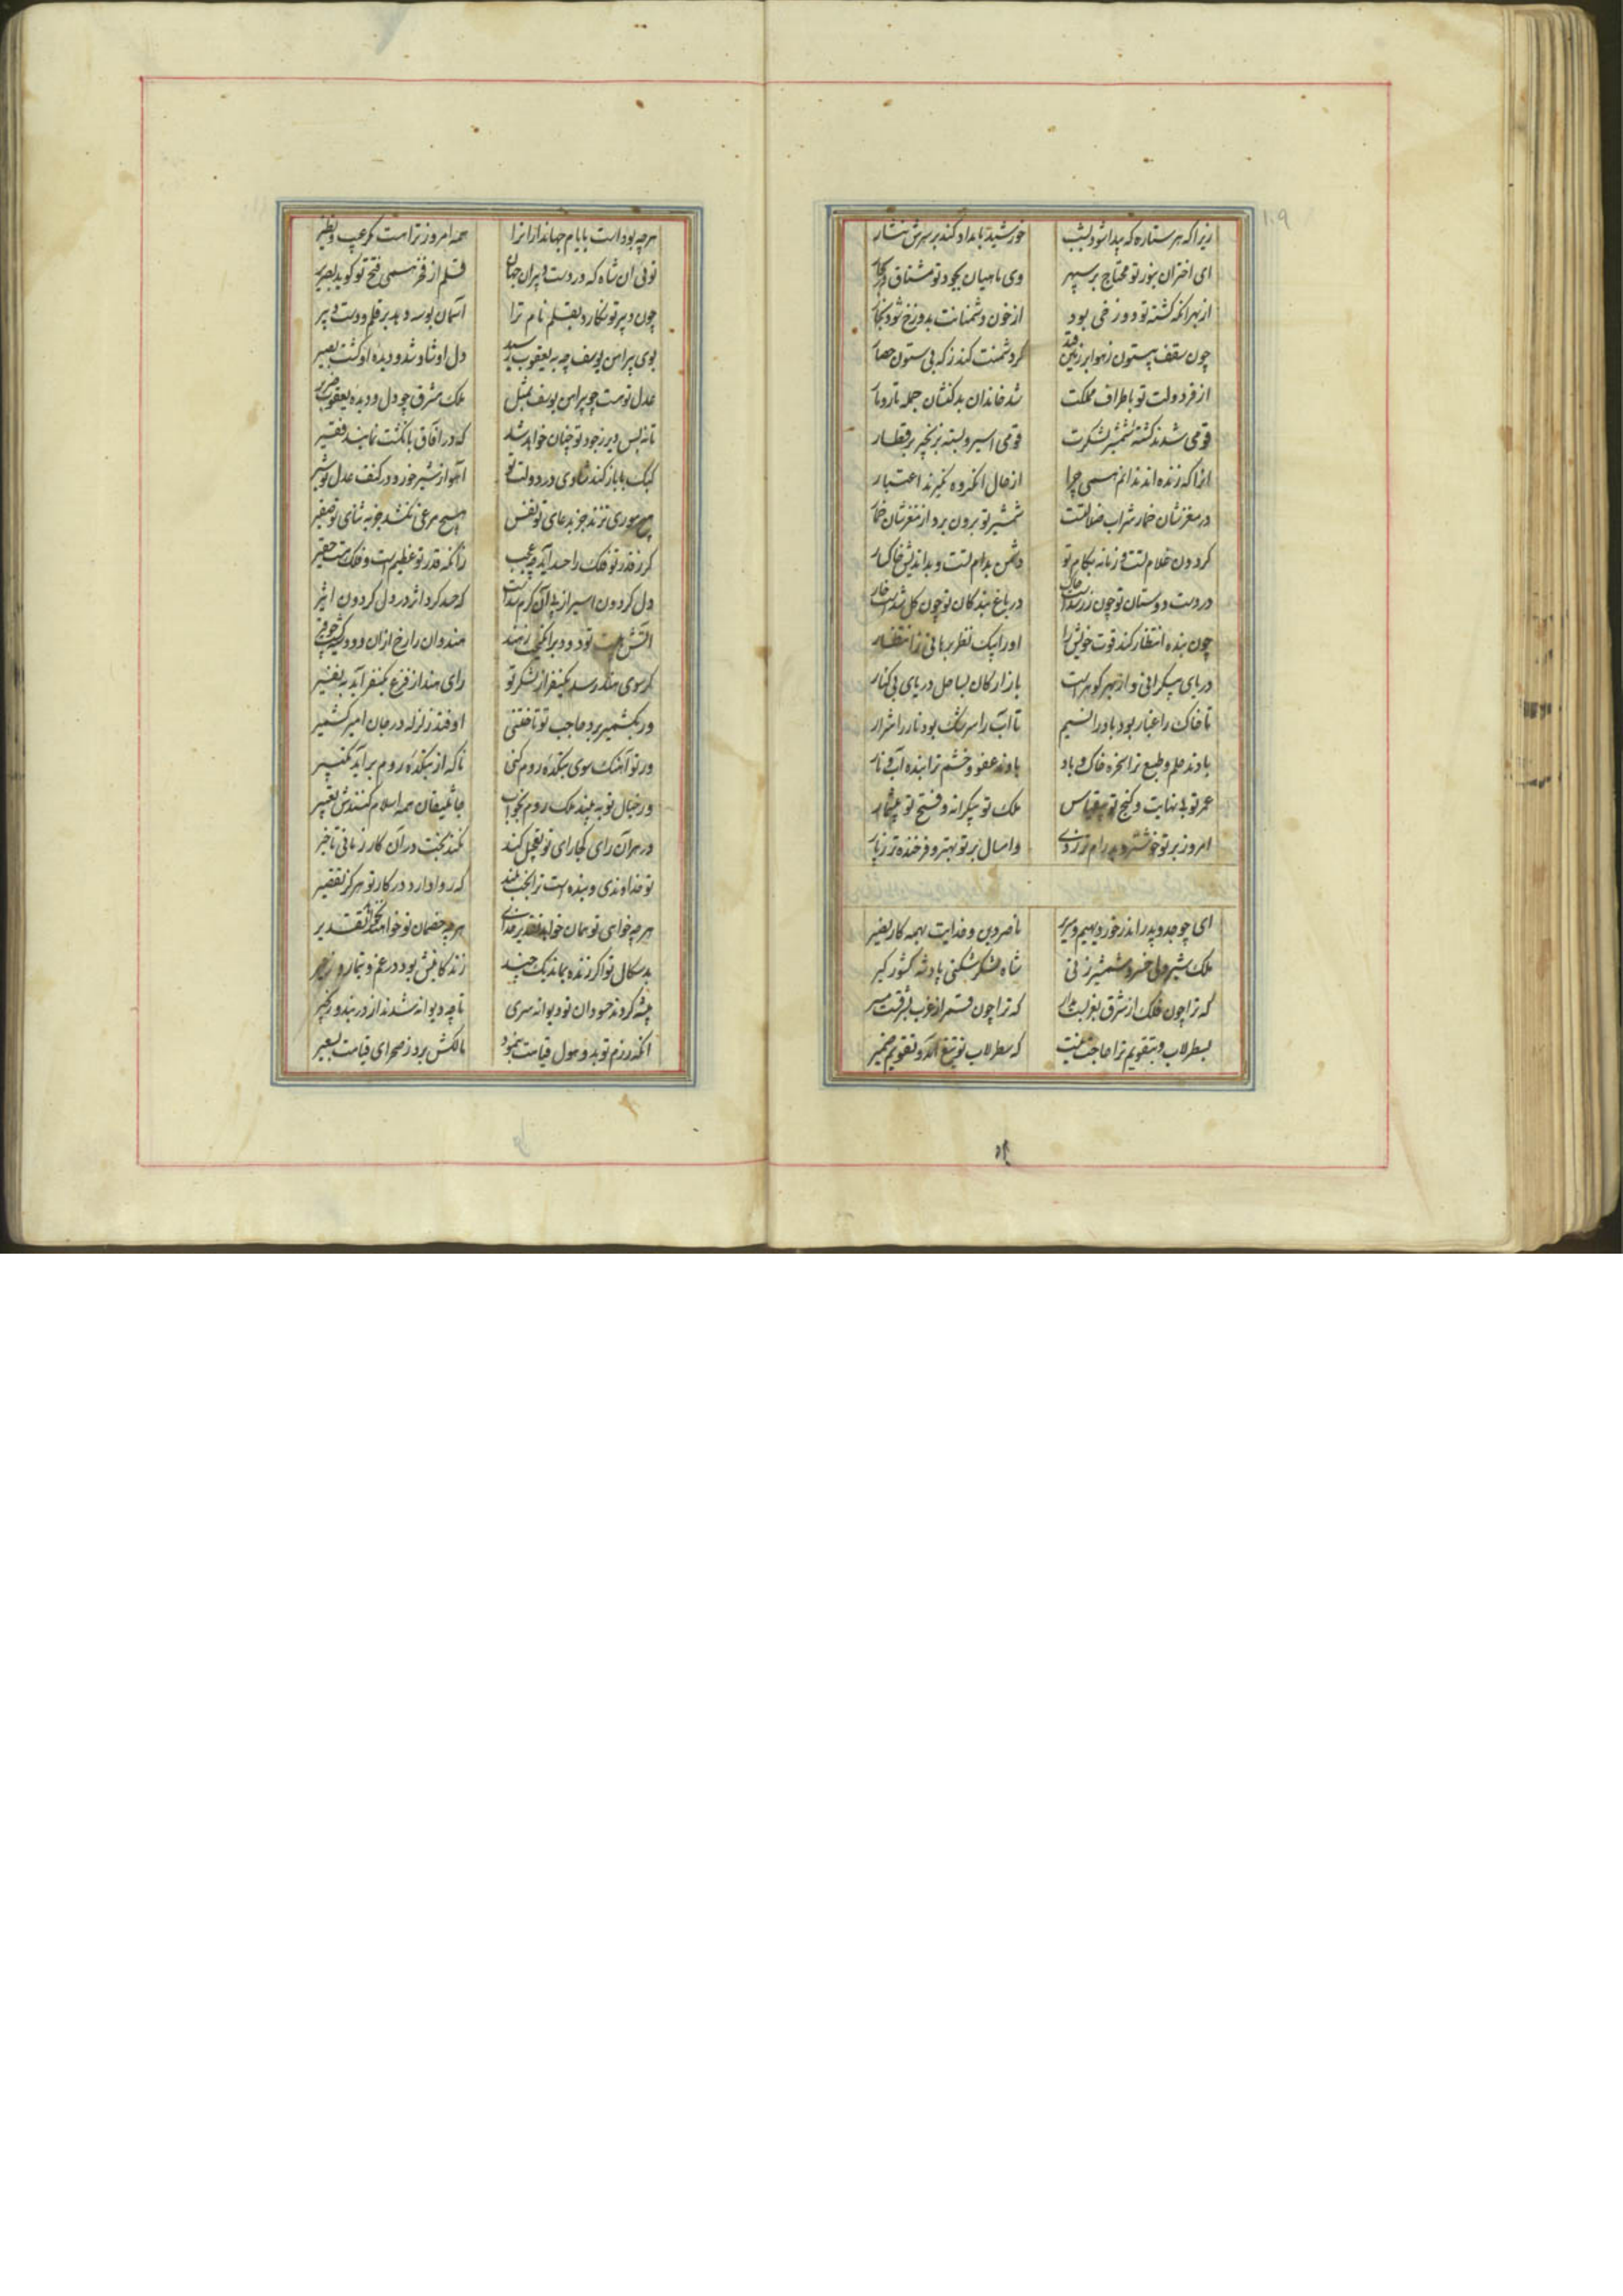 ۱۰۹
زیرا که هر ستاره که پیدا شود بشب خورشید بامداد کند بر سرش نثار
ای اختران بنور تو محتاج بر سپهر وی ماهیان بجود تو مشتاق در بحار
از بهر آنکه کشته تو دوزخی بود از خون دشمنانت بدوزخ شود بخار
چون سقف بیستون زهوا بر زمین فتد گر دشمنت کند ز که بی ستون حصار
از فر دولت تو باطراف مملکت شد خاندان بدکنشان جمله تار و مار
قومی شدند کشته شمشیر لشکرت قومی اسیر و بسته بزنجیر بر قطار
آنرا که زنده اند ندانم همی چرا از حال آن گروه نگیرند اعتبار
در مغزشان خمار شراب ضلالتست شمشیر تو برون برد از مغزشان خمار
گردون غلام تست و زمانه بکام تو دشمن بدام تست و بداندیش خاکسار
در دست دوستان تو چون زر شدست خاک در باغ بندگان تو چون گل شدست خار
چون بنده انتظار کند قوت خویش را او را بیک نظر برهانی ز انتظار
دریای بیکرانی و از بهر گوهرست بازارگان بساحل دریای بی کنار
تا خاک را غبار بود باد را نسیم تا آب را سرشک بود نار را شرار
بادند حلم و طبع ترا سخره خاک و باد بادند عفو و خشم ترا بنده آب و نار
عمر تو بی نهایت و گنج تو بی قیاس ملک تو بیکرانه و فتح تو بیشمار
امروز بر تو خوشتر و پدرام تر ز دی و امسال بر تو بهتر و فرخنده تر ز پار
ای چو جد و پدر اندر خور دیهیم و سریر ناصر دین و خدایت بهمه کار نصیر
ملک شیر دلی خسرو شمشیر زنی شاه لشکر شکنی پادشه کشور گیر
که ترا چون فلک از شرق بغربست مدار که ترا چون قمر از غرب بشرقست مسیر
بسطرلاب و بتقویم ترا حاجت نیست که سطرلاب تو تیغ آمد و تقویم ضمیر
هر چه بودست بایام جهانداران را همه امروز تراست مگر عیب و نظیر
توئی آن شاه که در دست دبیران جهان قلم از فخر همی فتح تو گوید بصریر
چون دبیر تو نگارد بقلم نام ترا آسمان بوسه دهد بر قلم و دست دبیر
بوی پیراهن یوسف چو به یعقوب رسید دل او شاد شد و دیده او گشت بصیر
عدل تو هست چو پیراهن یوسف بمثل ملک مشرق چو دل و دیده یعقوب ضریر
تا نه بس دیر ز جود تو چنان خواهد شد که در آفاق بانگشت نمایند فقیر
کبک با باز کند شادی در دولت تو آهو از شیر خورد در کنف عدل تو شیر
هیچ موری نزند جز بدعای تو نفس هیچ مرغی نکشد جز به ثنای تو صفیر
گر ز قدر تو فلک را حسد آید چه عجب زانکه قدر تو عظیم است و فلک هست حقیر
که حسد کرد اثر در دل گردون اثیر
هندوان را رخ از آن دود
گر سوی هند رسد یکنفر از لشکر تو رای هند از فزع یکنفر آید به نفیر
ور بکشمیر برد حاجب تو تاختنی اوفتد زلزله در جان امیر کشمیر
ور تو آهنگ سوی بتکده روم کنی ناگه از بتکده روم برآید تکبیر
ور خیال تو به بیند ملک روم بخواب جاثلیقان همه اسلام کنندش تعبیر
در هر آن رای کجا رای تو تعجیل کند نکند بخت در آن کار زمانی تاخیر
تو خداوندی و بنده است ترا بخت بلند که روا دارد در کار تو هرگز تقصیر
هر چه خواهی تو همان خواهد تقدیر خدای هر چه خصمان تو خواهند نخواهد تقدیر
بدسگال تو اگر زنده بماند یک چند زندگانیش بود در غم و تیمار و زحیر
پیشه کردند حسودان تو دیوانه سری تا چو دیوانه شدند از در بند و زنجیر
آنکه در رزم تو بد و هول قیامت بنمود مالکش برد ز صحرای قیامت بسعیر